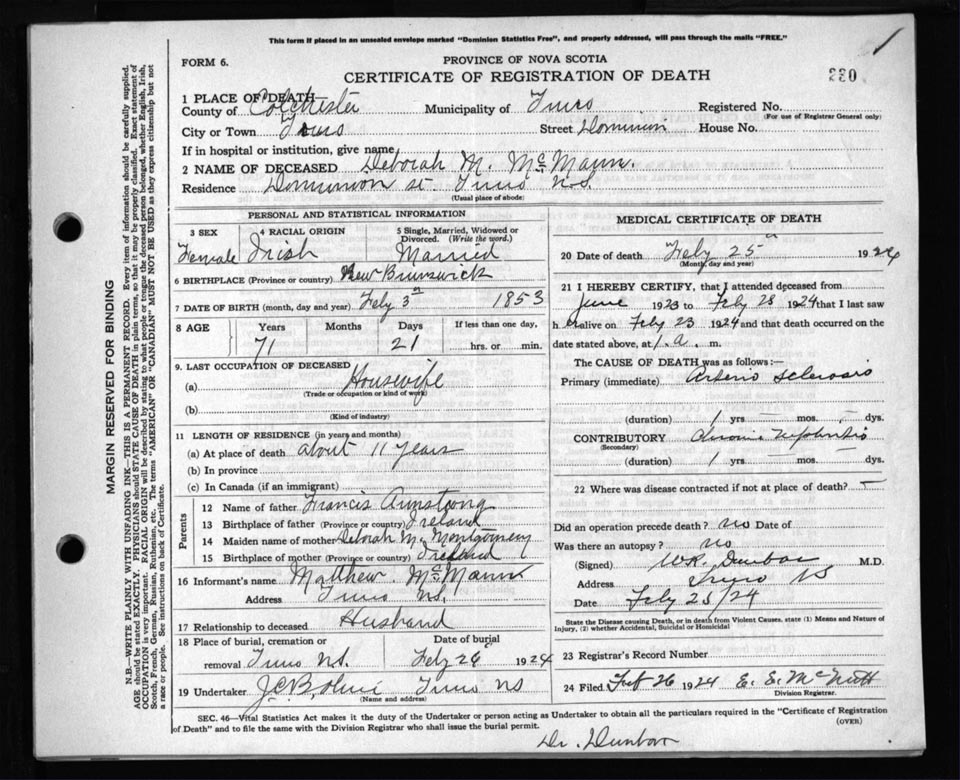 This form if placed in an unsealed envelope marked "Dominion Statistics Free", and properly addressed, will pass through the mails "FREE."
FORM 6.
PROVINCE OF NOVA SCOTIA
CERTIFICATE OF REGISTRATION OF DEATH
330
1 PLACE OF DEATH—
County of Colchester Municipality of Truro Registered No.
(For use of Registrar General only)
City or Town Truro Street Dominion House No.
If in hospital or institution, give name
2 NAME OF DECEASED Deborah M. McMann.
Residence Dominion St Truro N.S.
(Usual place of abode)
PERSONAL AND STATISTICAL INFORMATION
3 SEX 4 RACIAL ORIGIN 5 Single, Married, Widowed or Divorced. (Write the word.)
Female Irish Married
6 BIRTHPLACE (Province or country) New Brunswick
7 DATE OF BIRTH (month, day and year) Feby 3rd 1853
8 AGE Years Months Days If less than one day,
71 21 hrs. or min.
9. LAST OCCUPATION OF DECEASED
(a) Housewife
(Trade or occupation or kind of work)
(b)
(Kind of industry)
11 LENGTH OF RESIDENCE (in years and months)
(a) At place of death about 11 years
(b) In province
(c) In Canada (if an immigrant)
Parents
12 Name of father Francis Armstrong
13 Birthplace of father (Province or country) Ireland
14 Maiden name of mother Deborah M. Montgomery
15 Birthplace of mother (Province or country) Ireland
16 Informant's name Matthew McMann
Address Truro N.S.
17 Relationship to deceased Husband
18 Place of burial, cremation or removal Truro N.S. Date of burial Feby 26 1924
19 Undertaker Truro NS
(Name and address)
MEDICAL CERTIFICATE OF DEATH
20 Date of death Feby 25th 1924
(Month, day and year)
21 I HEREBY CERTIFY, that I attended deceased from
June 1923 to Feby 28 1924 that I last saw
her alive on Feby 23 1924 and that death occurred on the
date stated above, at 1.a. m.
The CAUSE OF DEATH was as follows:—
Primary (immediate) Arterio Sclerosis
(duration) 1 yrs — mos. — dys.
CONTRIBUTORY Chronic Nephritis
(Secondary)
(duration) 1 yrs — mos. — dys.
22 Where was disease contracted if not at place of death? —
Did an operation precede death? no Date of
Was there an autopsy? no
(Signed) W.R. Dunbar M.D.
Address Truro NS
Date Feby 25/24
State the Disease causing Death, or in death from Violent Causes, state (1) Means and Nature of
Injury, (2) whether Accidental, Suicidal or Homicidal
23 Registrar's Record Number
24 Filed Feb 26 1924 E. E. McNutt
Division Registrar.
SEC. 46—Vital Statistics Act makes it the duty of the Undertaker or person acting as Undertaker to obtain all the particulars required in the "Certificate of Registration
of Death" and to file the same with the Division Registrar who shall issue the burial permit.
(OVER)
Dr. Dunbar
MARGIN RESERVED FOR BINDING
N.B.—WRITE PLAINLY WITH UNFADING INK—THIS IS A PERMANENT RECORD. Every item of information should be carefully supplied.
AGE should be stated EXACTLY. PHYSICIANS should STATE CAUSE OF DEATH in plain terms, so that it may be properly classified. Exact statement of
OCCUPATION is very important. RACIAL ORIGIN will be described by stating to what people or tongue the deceased person belonged, whether English, Irish,
Scotch, French, German, Russian, Ruthenian, etc. The terms "AMERICAN" OR "CANADIAN" MUST NOT BE USED as they express citizenship but not
a race or people. See instructions on back of Certificate.